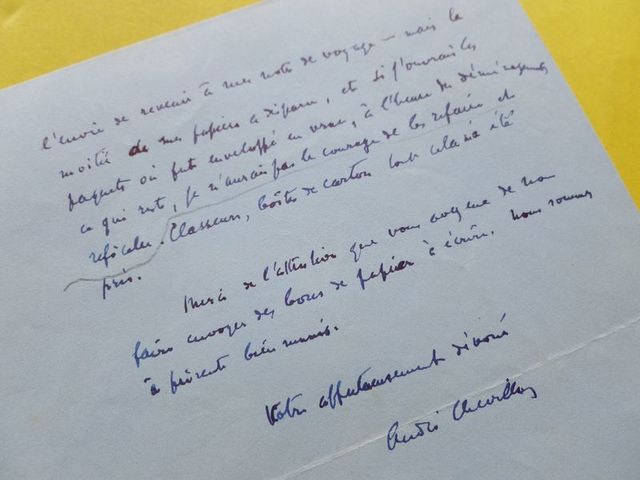 l'envie de revenir à mes notes de voyage — mais la
moitié de mes papiers a disparu, et si j'ouvrais les
paquets où fut enveloppé en vrac, à l'heure du déménagement,
ce qui reste, je n'aurais pas le courage de les refaire et
reficeler. Classeurs, boîtes de carton tout cela a été
pris.
Merci de l'attention que vous avez eue de nous
faire envoyer des blocs de papier à écrire. Nous sommes
à présent bien munis.
Votre affectueusement dévoué
André Chevrillon